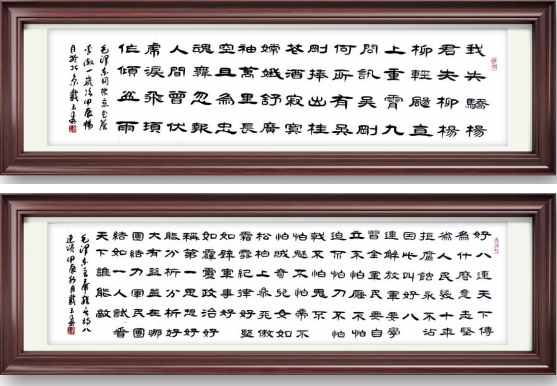 我失驕楊
君失柳楊
柳輕颺直
上重霄九
問訊吳剛
何所有吳
剛捧出桂
花酒寂寞
嫦娥舒廣
袖萬里長
空且為忠
魂舞忽報
人間曾伏
虎淚飛頃
作傾盆雨
毛澤東同志
李淑一歲次甲辰暢
月於北京戴玉
好八連天下傳
為什麼意志堅
為人民幾十年
拒腐蝕永不沾
因此叫好八
連解放軍要學
習全軍民要自
立不怕壓不怕
迫不怕刀不怕
戟不怕鬼不
怕魅不怕帝不
怕賊奇兒女如
松柏上參天傲
霜雪紀律好堅
如壁軍事好
如霹靂政治好
稱第一思想好
能分析分析好
大有益益在哪
團結力軍民團
結如一人試看
天下誰能敵
毛澤東主席雜言詩八
連頌甲辰秋月戴玉